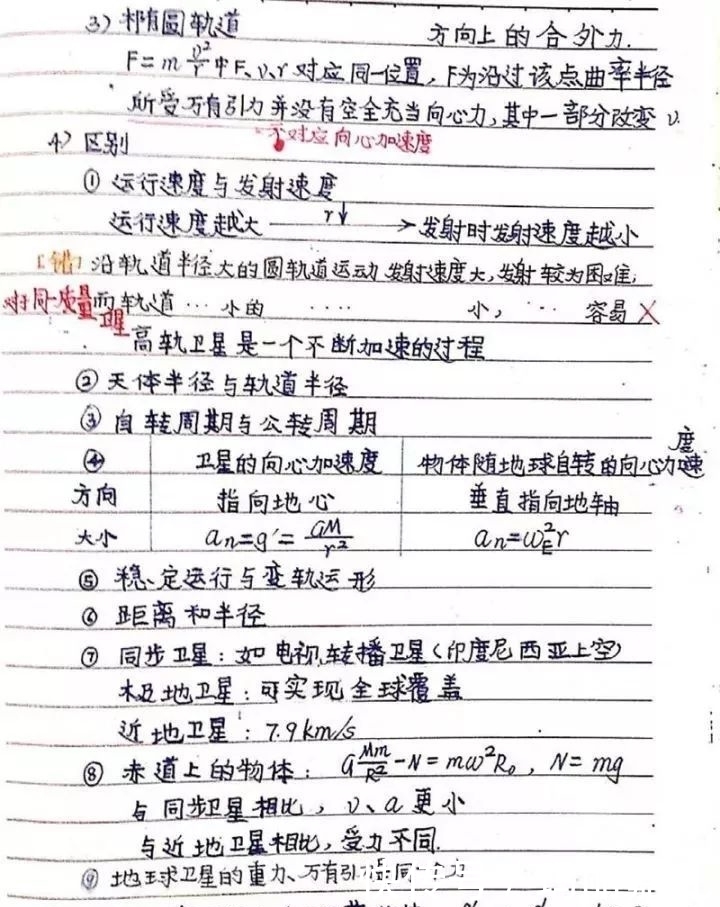 3) 椭圆轨道
方向上的合外力.
F=m v²/r 中F、v、r 对应同一位置, r为沿过该点曲率半径
所受万有引力并没有完全充当向心力,其中一部分改变 v
不对应向心加速度
4) 区别
① 运行速度与发射速度
运行速度越大 —r↓→ 发射时发射速度越小
[错] 沿轨道半径大的圆轨道运动发射速度大,发射较为困难;
对于同一质量卫星 而轨道 … 小的 …… 小, … 容易 ×
高轨卫星是一个不断加速的过程
② 天体半径与轨道半径
③ 自转周期与公转周期
④ 卫星的向心加速度 物体随地球自转的向心加速度
方向 指向地心 垂直指向地轴
大小 an=g'=GM/r² an=ωE²r
⑤ 稳定运行与变轨运形
⑥ 距离和半径
⑦ 同步卫星:如电视转播卫星(印度尼西亚上空)
极地卫星:可实现全球覆盖
近地卫星:7.9km/s
⑧ 赤道上的物体: G Mm/R² -N=mω²R₀, N=mg
与同步卫星相比, v、a更小
与近地卫星相比,受力不同.
⑨ 地球卫星的重力、万有引